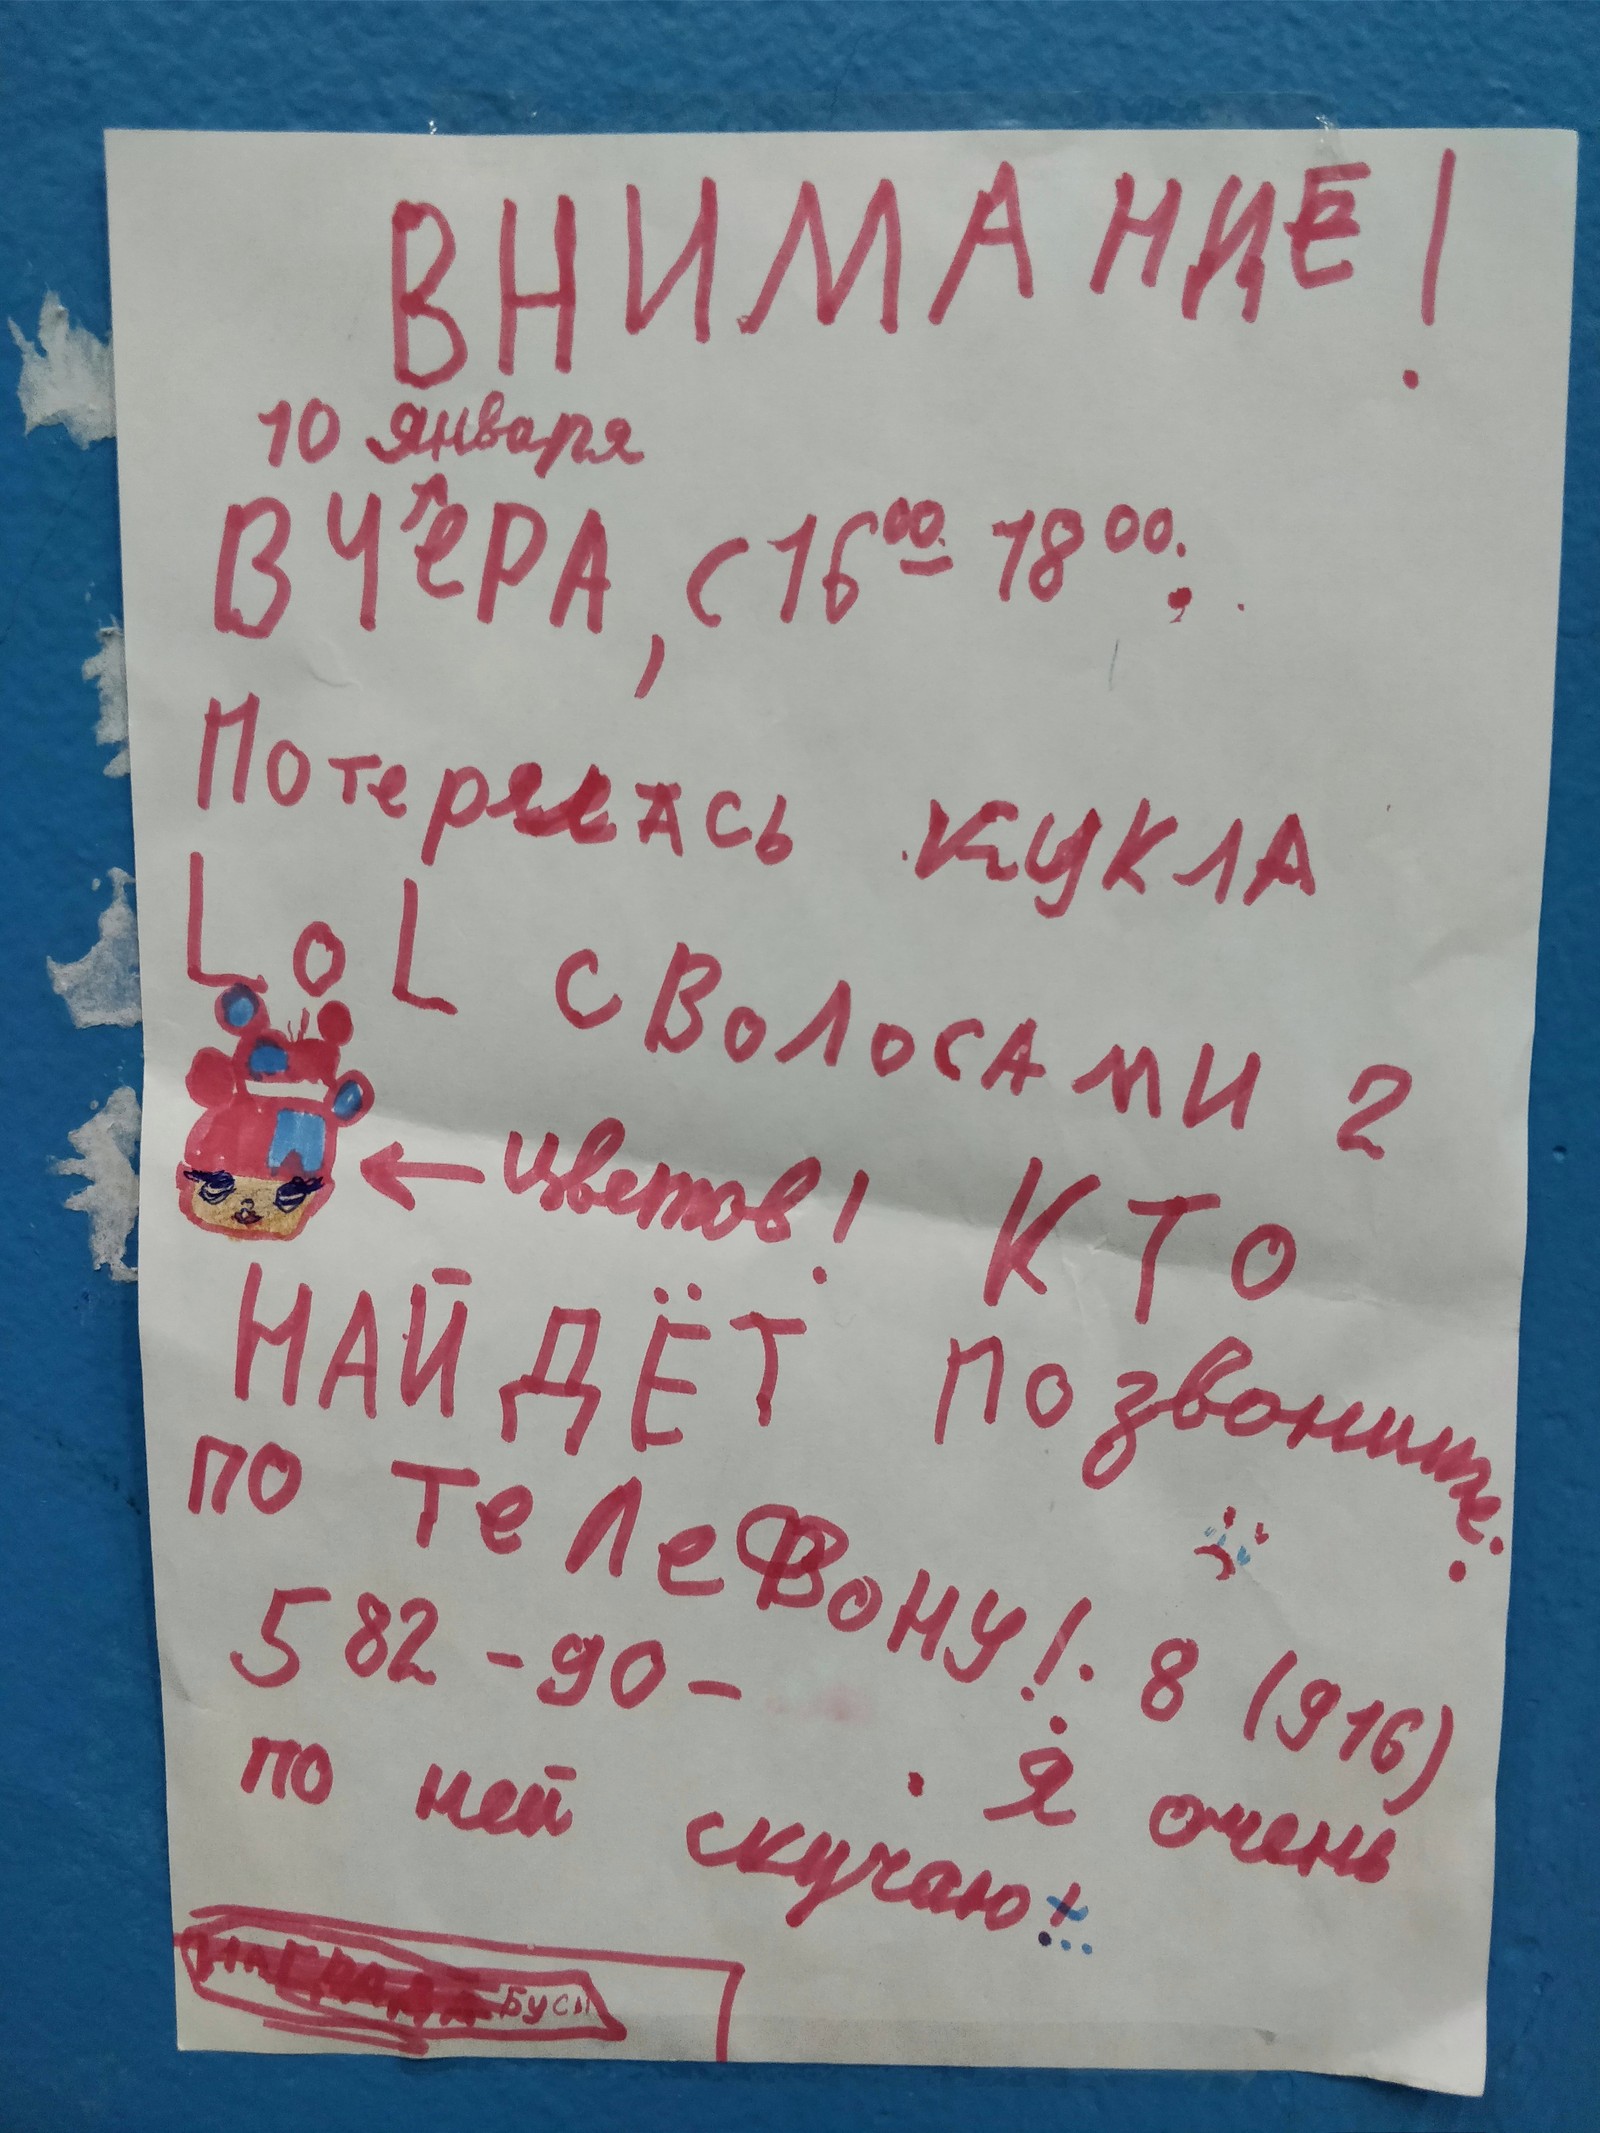 ВНИМАНИЕ!
10 января
ВЧЕРА, с 16⁰⁰-18⁰⁰.
Потерялась кукла
LOL с волосами 2
← цветов! КТО
НАЙДЁТ Позвоните:
по телефону! 8 (916)
582-90-
Я очень
по ней скучаю!
НАГРАДА Бусы